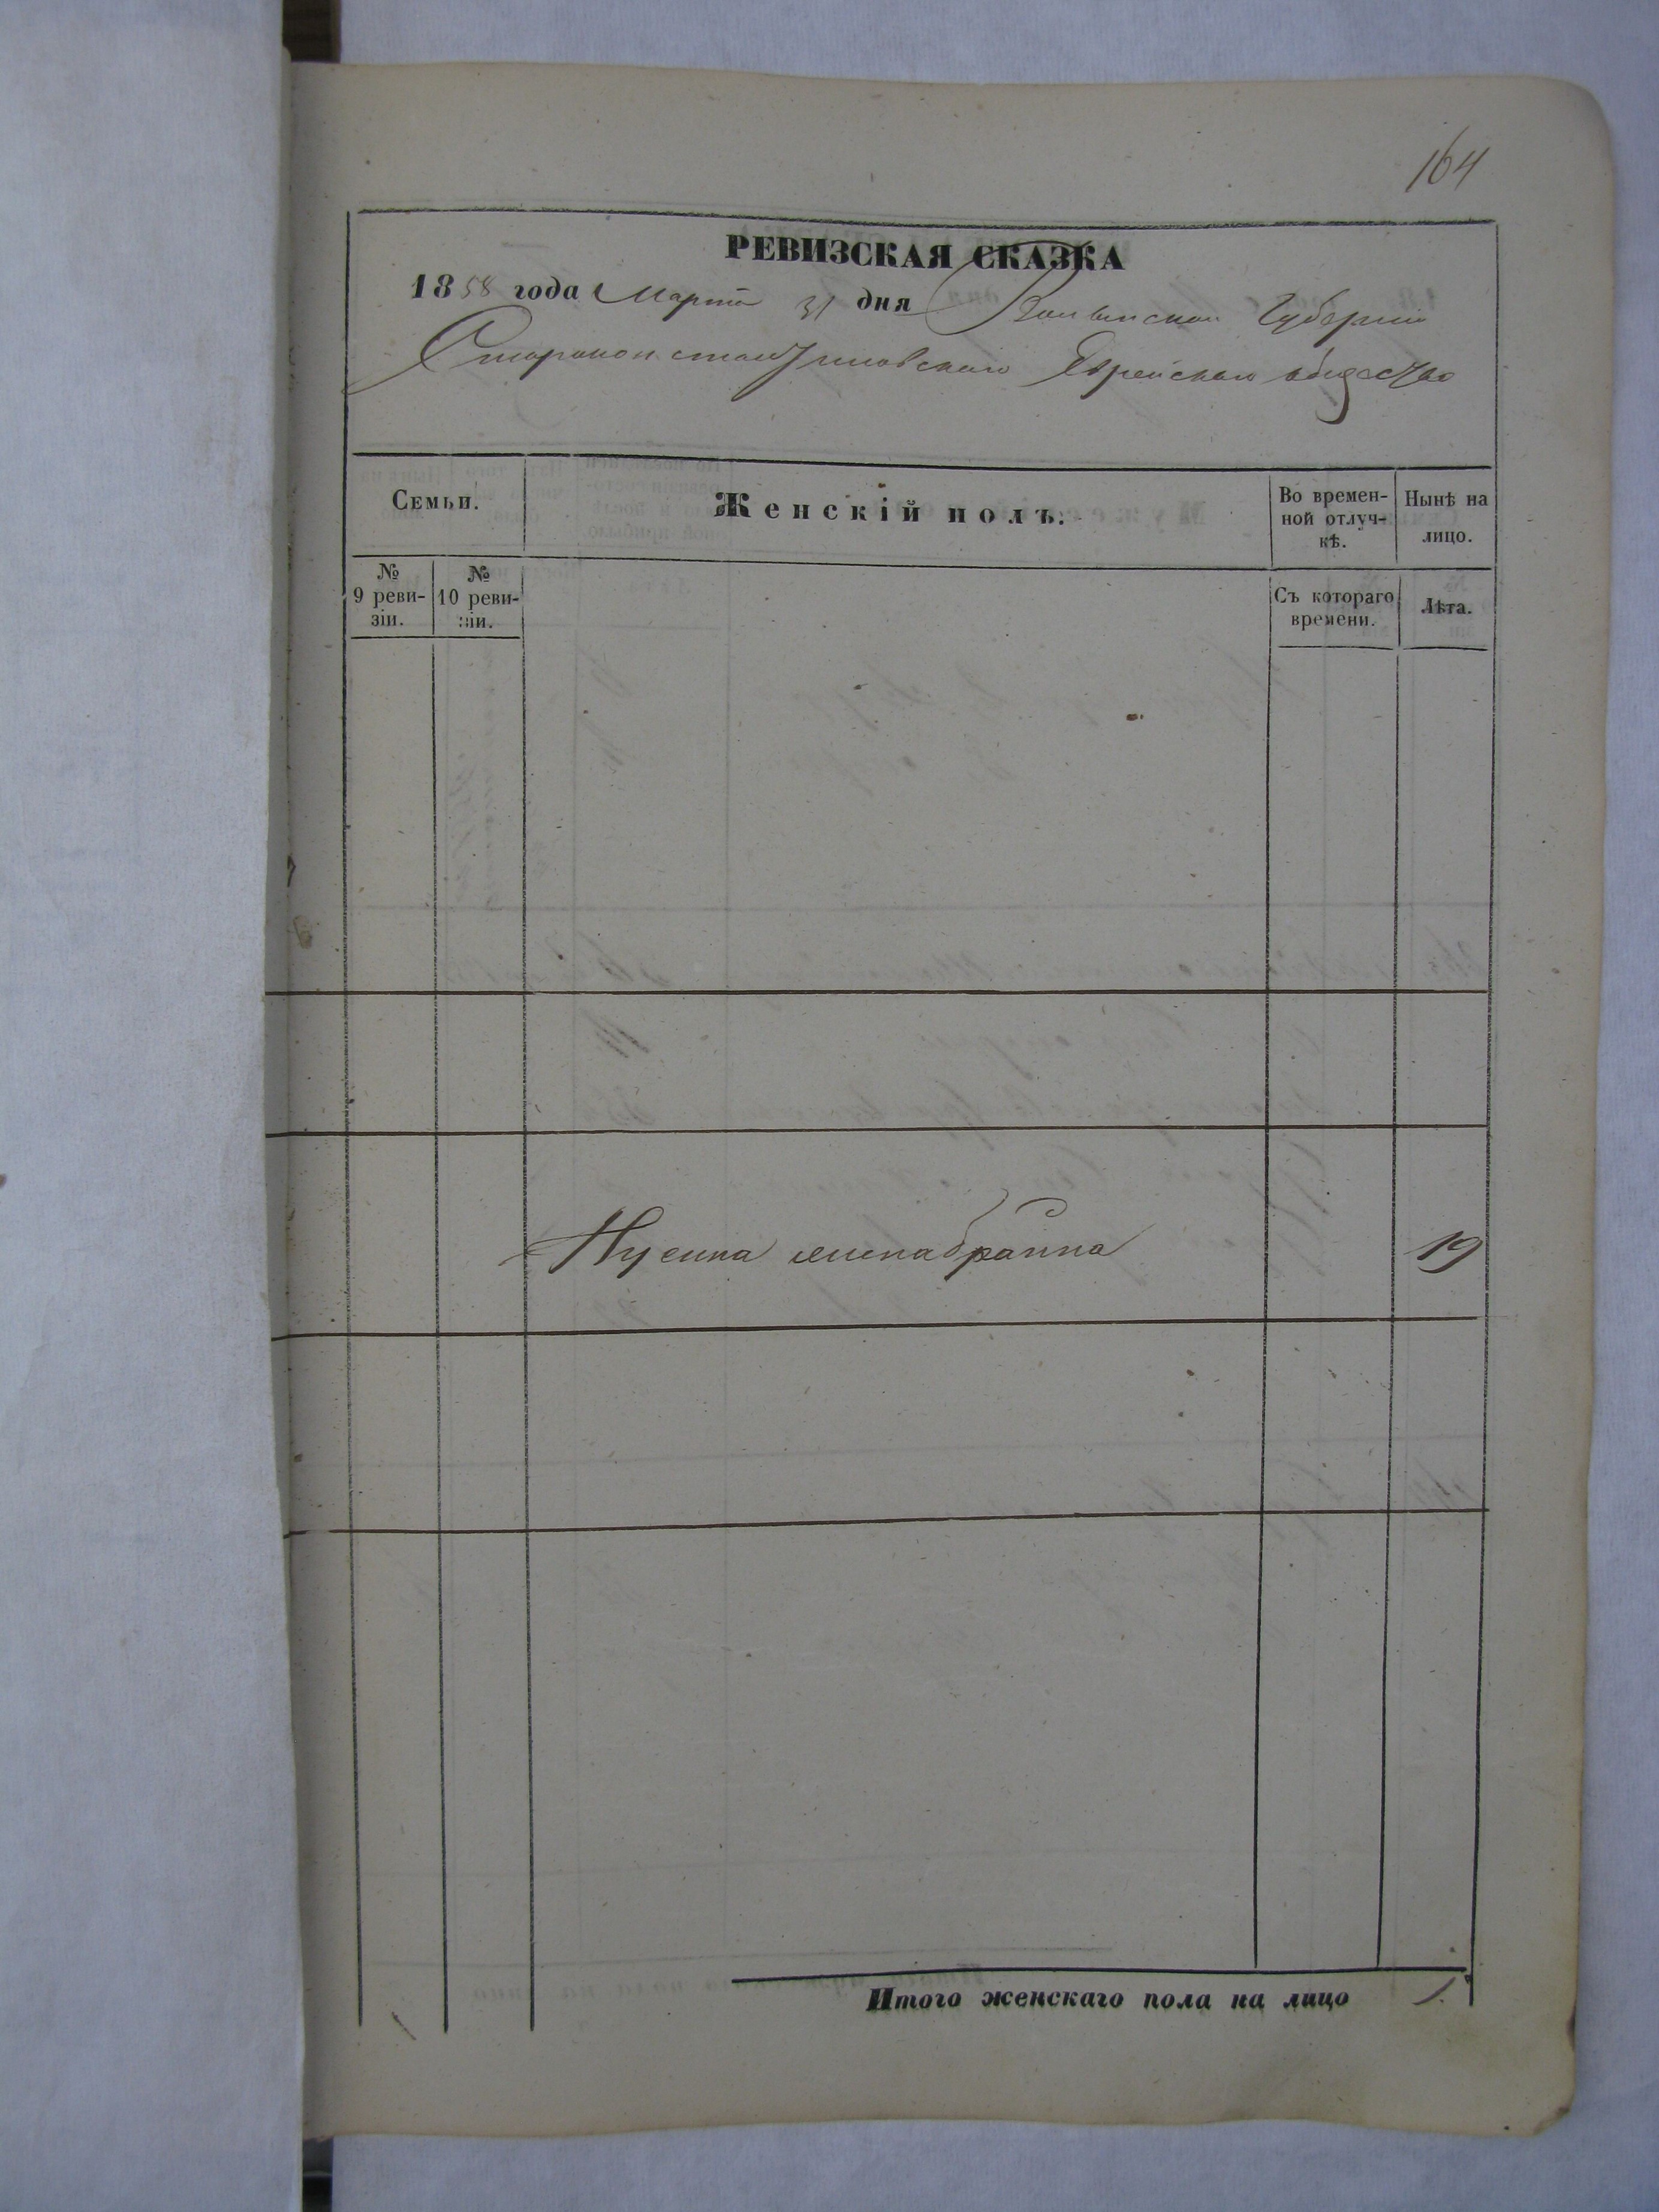 164
РЕВИЗСКАЯ СКАЗКА
1858 года Марта 31 дня Волынской Губернии
Староконстантиновского Еврейского общества
Семьи.
Женскій полъ.
Во времен-
ной отлуч-
кѣ.
Нынѣ на
лицо.
№
9 реви-
зіи.
№
10 реви-
зіи.
Съ котораго
времени.
Лѣта.
19
Итого женскаго пола на лицо 1.